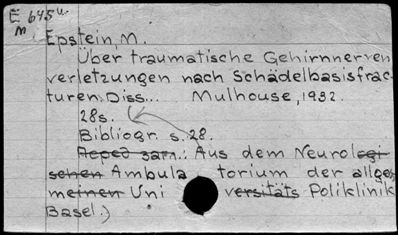 E 645 u.
m.
Epstein, M.
Über traumatische Gehirnnerven
verletzungen nach Schädelbasisfrac-
turen. Diss... Mulhouse, 1932.
28s.
Bibliogr. s. 28.
Aus dem Neurologi
schen Ambula torium der allge
meinen Uni versitäts Poliklinik
Basel.)